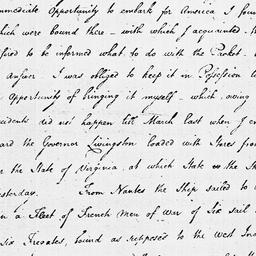 mmediate Opportunity to embark for America I foun
hich were bound there – with which I acquainted
sired to be informed what to do with the Packet.
Answer. I was obliged to keep it in Possession t
Opportunity of bringing it myself – which, owing
cidents did not happen till March last when I e
ard the Governor Livingston loaded with Stores from
r the State of Virginia, at which State in the Sh
yesterday. From Nantes the Ship sailed to
n a Fleet of French Men of War of Six sail
Six Fregates, bound as supposed to the West Ind